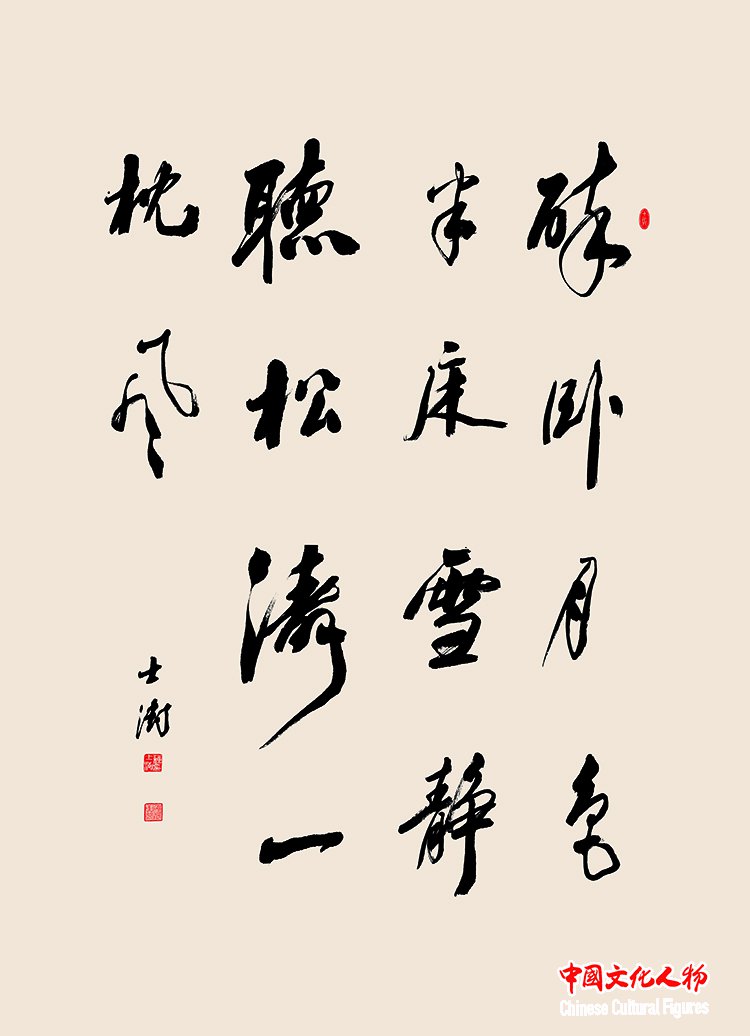 醉卧月色
半床雪静
聽松濤一
枕风
士澍
中國文化人物
Chinese Cultural Figures